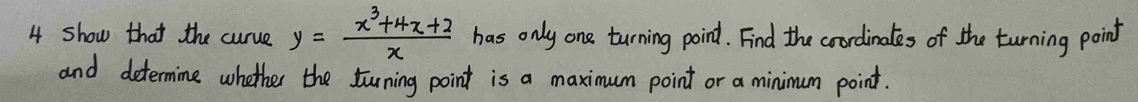 4 Show that the curve y = (x³+4x+2)/x has only one turning point. Find the coordinates of the turning point
and determine whether the turning point is a maximum point or a minimum point.